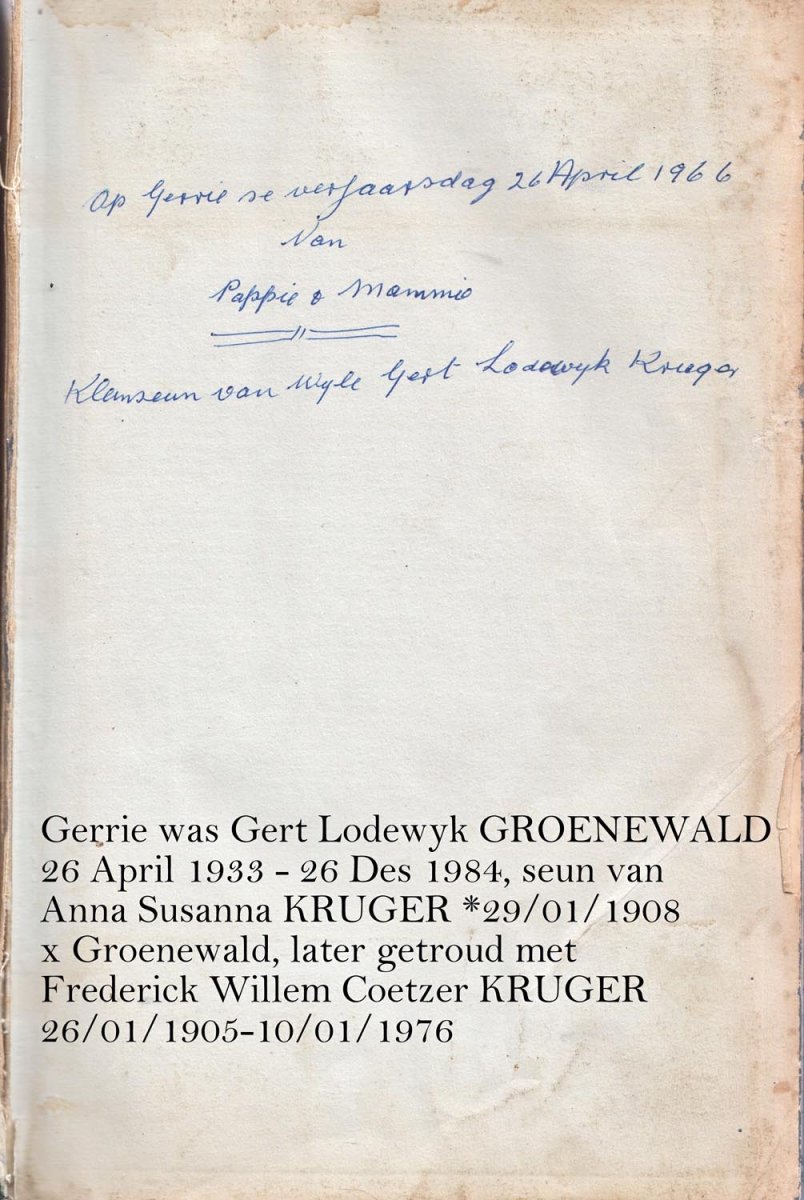 Op Gerrie se verjaarsdag 26 April 1966
Van
Pappie & Mammie
Kleinseun van Wyle Gert Lodewyk Kruger
Gerrie was Gert Lodewyk GROENEWALD
26 April 1933 - 26 Des 1984, seun van
Anna Susanna KRUGER *29/01/1908
x Groenewald, later getroud met
Frederick Willem Coetzer KRUGER
26/01/1905-10/01/1976